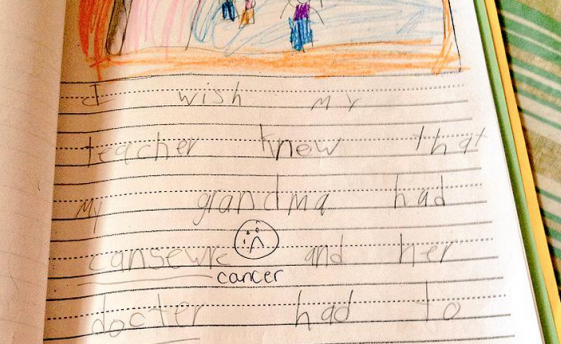 I wish my
teacher knew that
my grandma had
cansewrc and her
cancer
docter had to